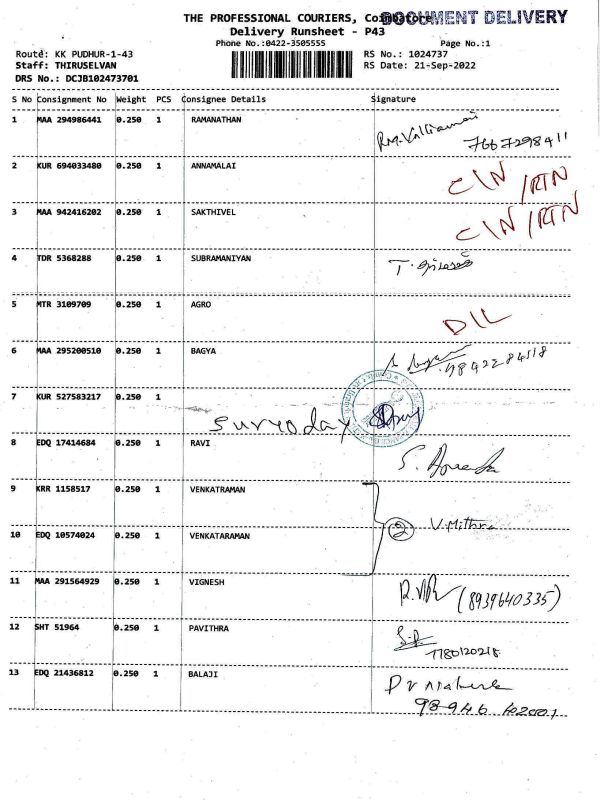 THE PROFESSIONAL COURIERS, Coimbatore DOCUMENT DELIVERY
Delivery Runsheet - P43
Phone No.:0422-3505555 Page No.:1
Route: KK PUDHUR-1-43 RS No.: 1024737
Staff: THIRUSELVAN RS Date: 21-Sep-2022
DRS No.: DCJB102473701
S No Consignment No Weight PCS Consignee Details Signature
1 MAA 294986441 0.250 1 RAMANATHAN
7667298411
2 KUR 694033480 0.250 1 ANNAMALAI C/N /RTN
3 MAA 942416202 0.250 1 SAKTHIVEL C/N /RTN
4 TDR 5368288 0.250 1 SUBRAMANIYAN
5 MTR 3109709 0.250 1 AGRO D/L
6 MAA 295200510 0.250 1 BAGYA 9842284518
7 KUR 527583217 0.250 1
Suryoday
8 EDQ 17414684 0.250 1 RAVI
9 KRR 1158517 0.250 1 VENKATRAMAN
② V.Mithra
10 EDQ 10574024 0.250 1 VENKATARAMAN
11 MAA 291564929 0.250 1 VIGNESH (8939640335)
12 SHT 51964 0.250 1 PAVITHRA
7780120218
13 EDQ 21436812 0.250 1 BALAJI